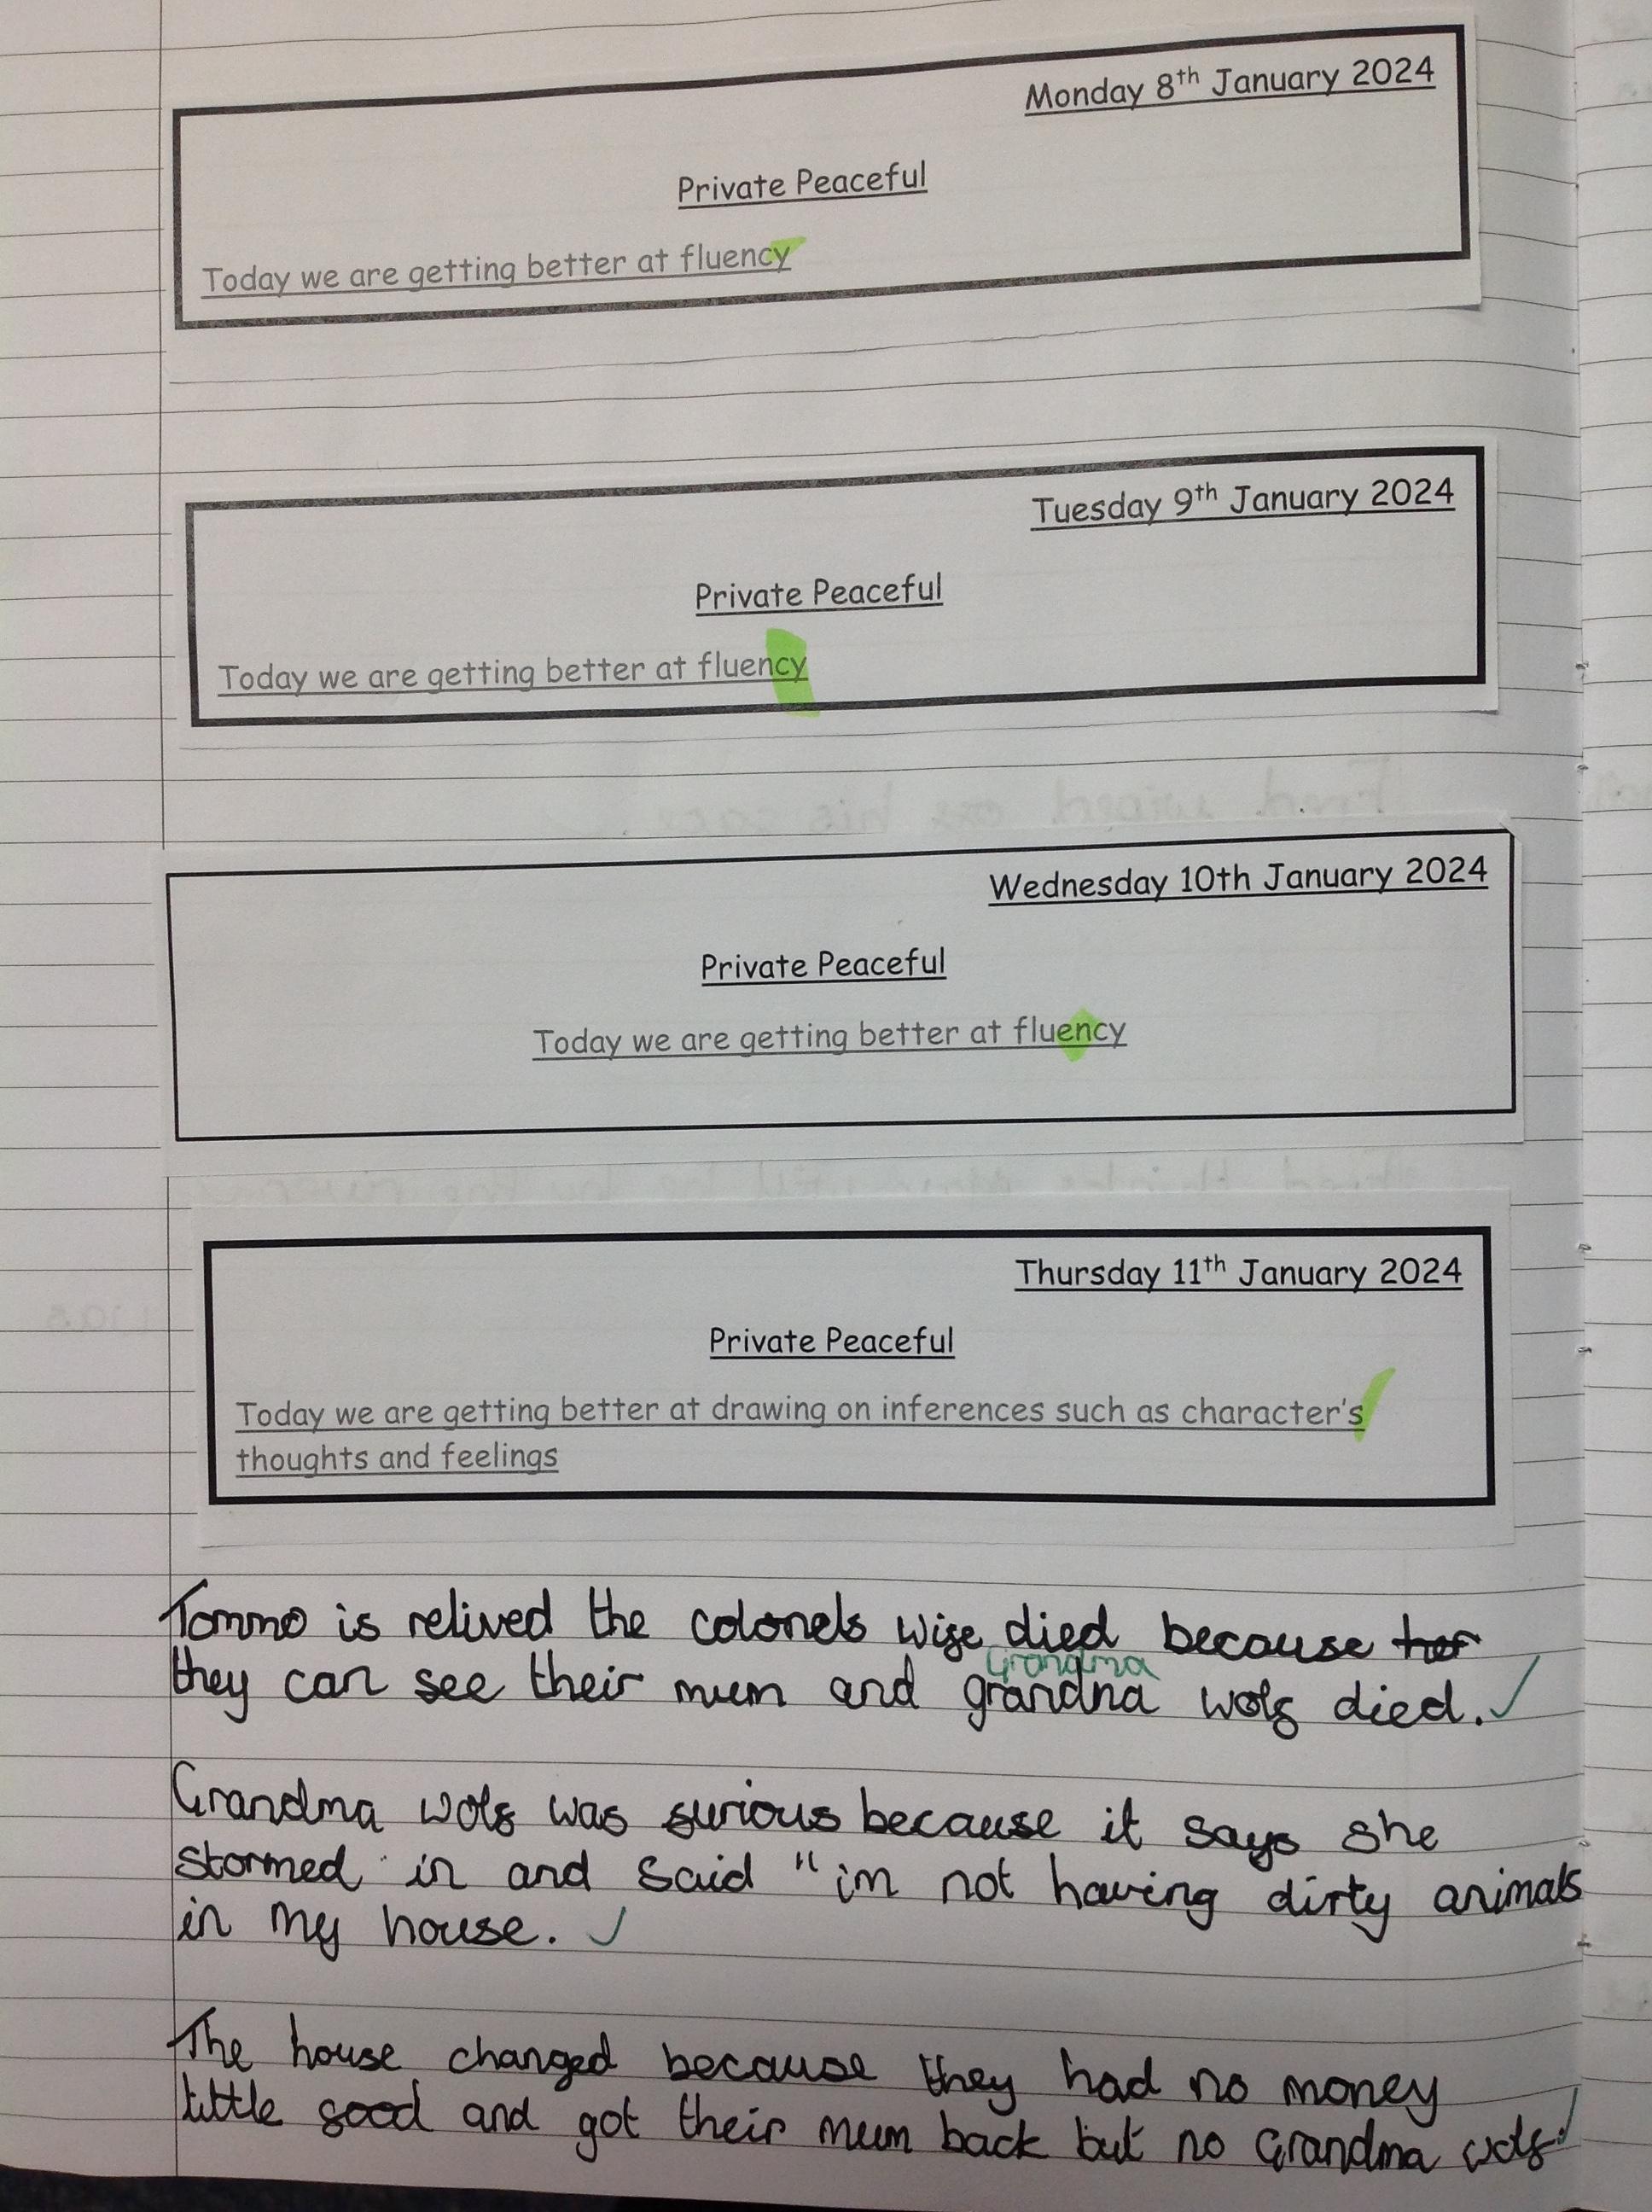 Monday 8th January 2024
Private Peaceful
Today we are getting better at fluency
Tuesday 9th January 2024
Private Peaceful
Today we are getting better at fluency
Wednesday 10th January 2024
Private Peaceful
Today we are getting better at fluency
Thursday 11th January 2024
Private Peaceful
Today we are getting better at drawing on inferences such as character's
thoughts and feelings
Tommo is relived the colonels wife died because her
Grandma
they can see their mum and grandna wolf died.
Grandma wolf was furious because it says she
stormed in and said "im not having dirty animals
in my house.
The house changed because they had no money
little food and got their mum back but no Grandma wolf.